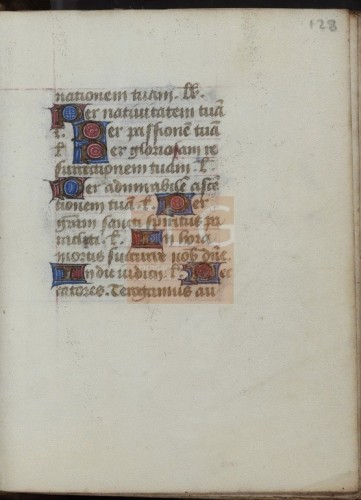 128
nationem tuam. lr̄.
Per natiuitatem tuā
l. Per passionē tuā
l̄ Per gloriosam re
surrectionem tuam. l̄.
Per admirabilē ascē
tionem tuā. l̄. Per
gr̄am sancti spiritus pa
racliti. l̄. In hora
mortis succurre nob̄ dn̄e.
In die iudicii. l̄. Pec
catores. Te rogamus au